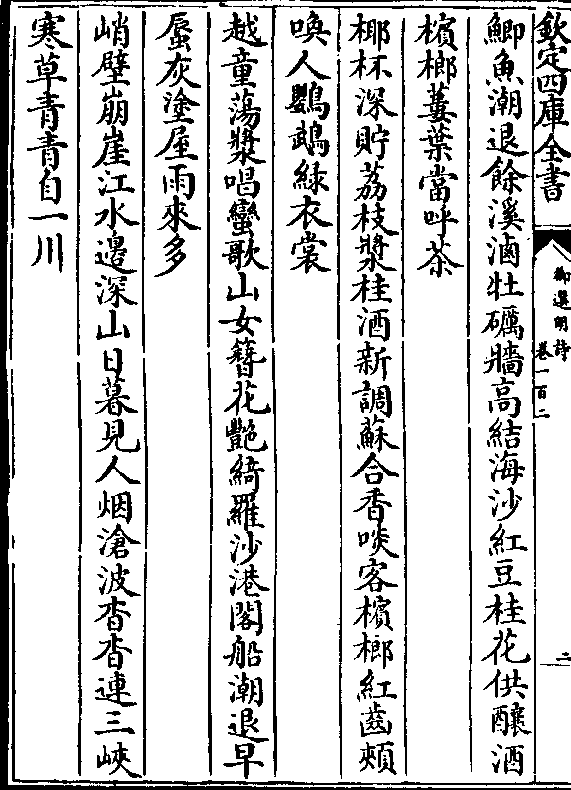 欽定四庫全書
御選明詩
卷一百二
二
鯽魚潮退餘溪滷牡礪牆高結海沙紅豆桂花供釀酒
檳榔蔞葉當呼茶
椰杯深貯荔枝漿桂酒新調蘇合香啖客檳榔紅齒頰
喚人鸚鵡綠衣裳
越童蕩槳唱蠻歌山女簪花艷綺羅沙港閣船潮退早
蜃灰塗屋雨來多
峭壁崩崖江水邊深山日暮見人烟滄波杳杳連三峽
寒草青青自一川